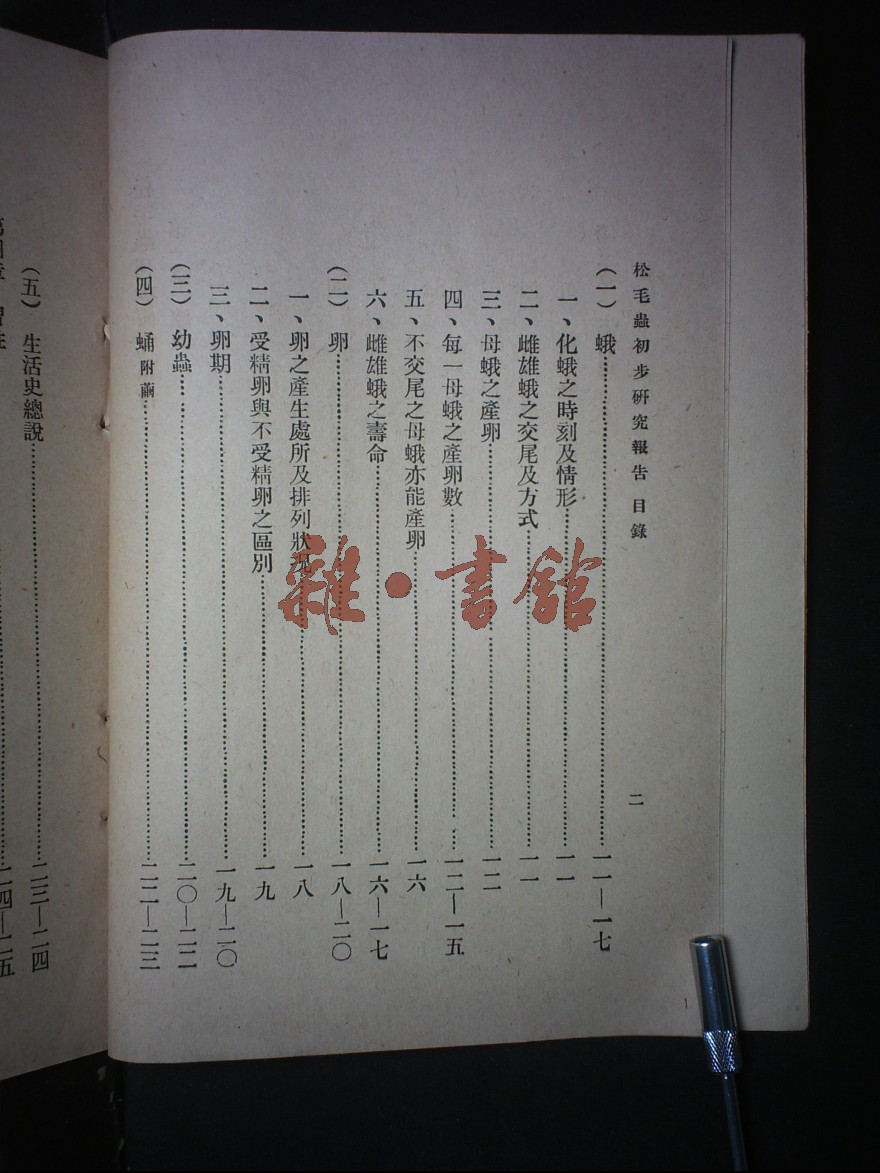 松毛蟲初步研究報告 目錄 二
(一) 蛾……一一—一七
一、化蛾之時刻及情形……一一
二、雌雄蛾之交尾及方式……一一
三、母蛾之產卵……一二
四、每一母蛾之產卵數……一二—一五
五、不交尾之母蛾亦能產卵……一六
六、雌雄蛾之壽命……一六—一七
(二) 卵……一八—二〇
一、卵之產生處所及排列狀況……一八
二、受精卵與不受精卵之區別……一九
三、卵期……一九—二〇
(三) 幼蟲……二〇—二二
(四) 蛹附繭……二二—二三
(五) 生活史總說……二三—二四
二四—二五
雜·書館
1